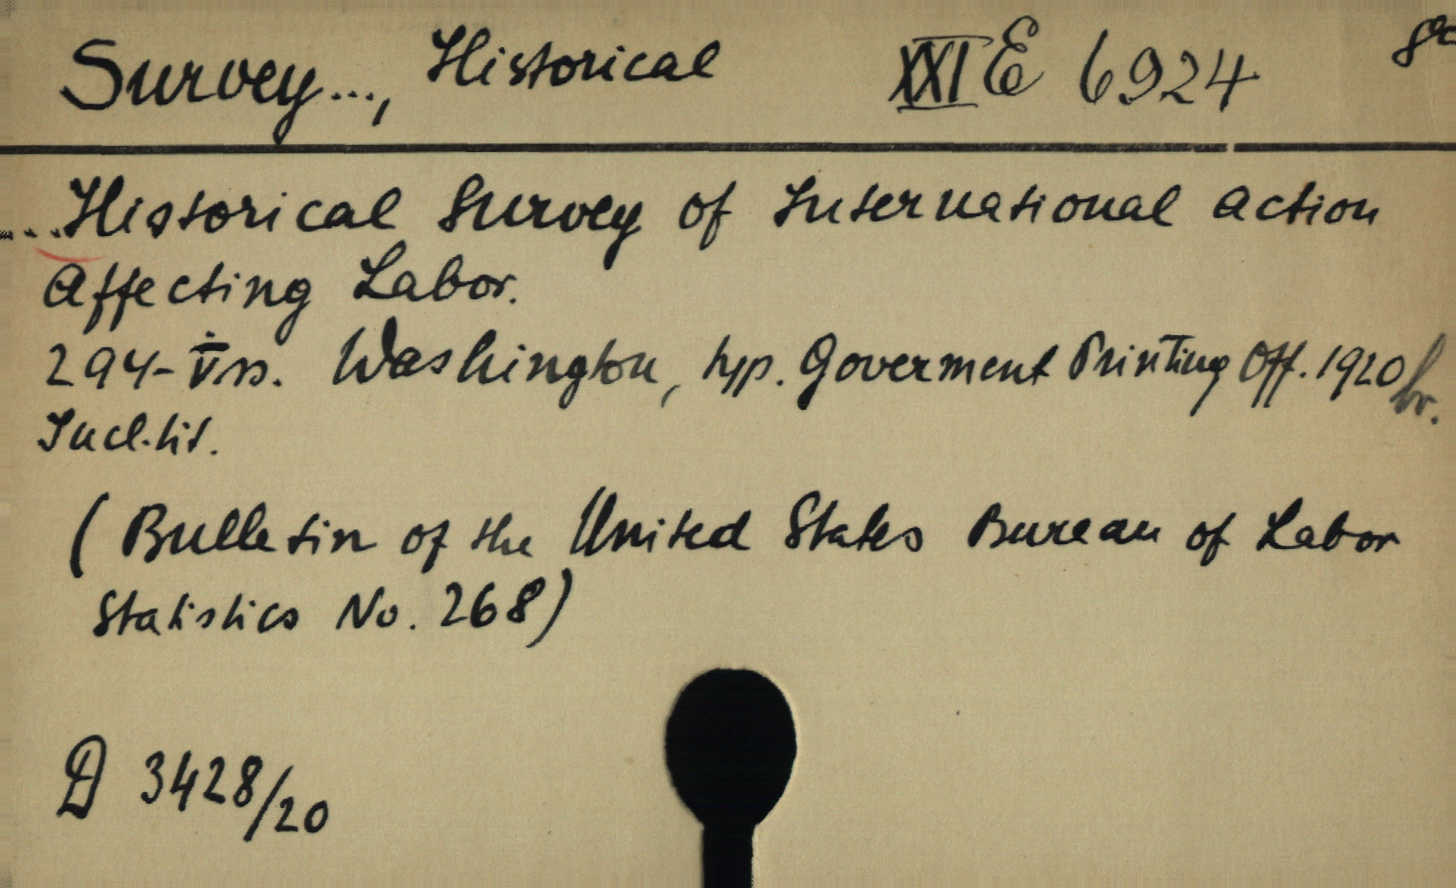 Survey..., Historical XXI E 6924 8°
...Historical Survey of International action
Affecting Labor.
294-V ss. Washington, typ. Goverment Printing Off. 1920 br.
Incl. tit.
(Bulletin of the United States Bureau of Labor
Statistics No. 268)
D 3428/20